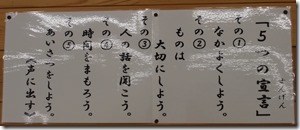 「５つの宣言」
せんげん
その①
なかよくしよう。
その②
ものは
大切にしよう。
その③
人の話を聞こう。
その④
時間をまもろう。
その⑤
あいさつをしよう。
（声に出す）